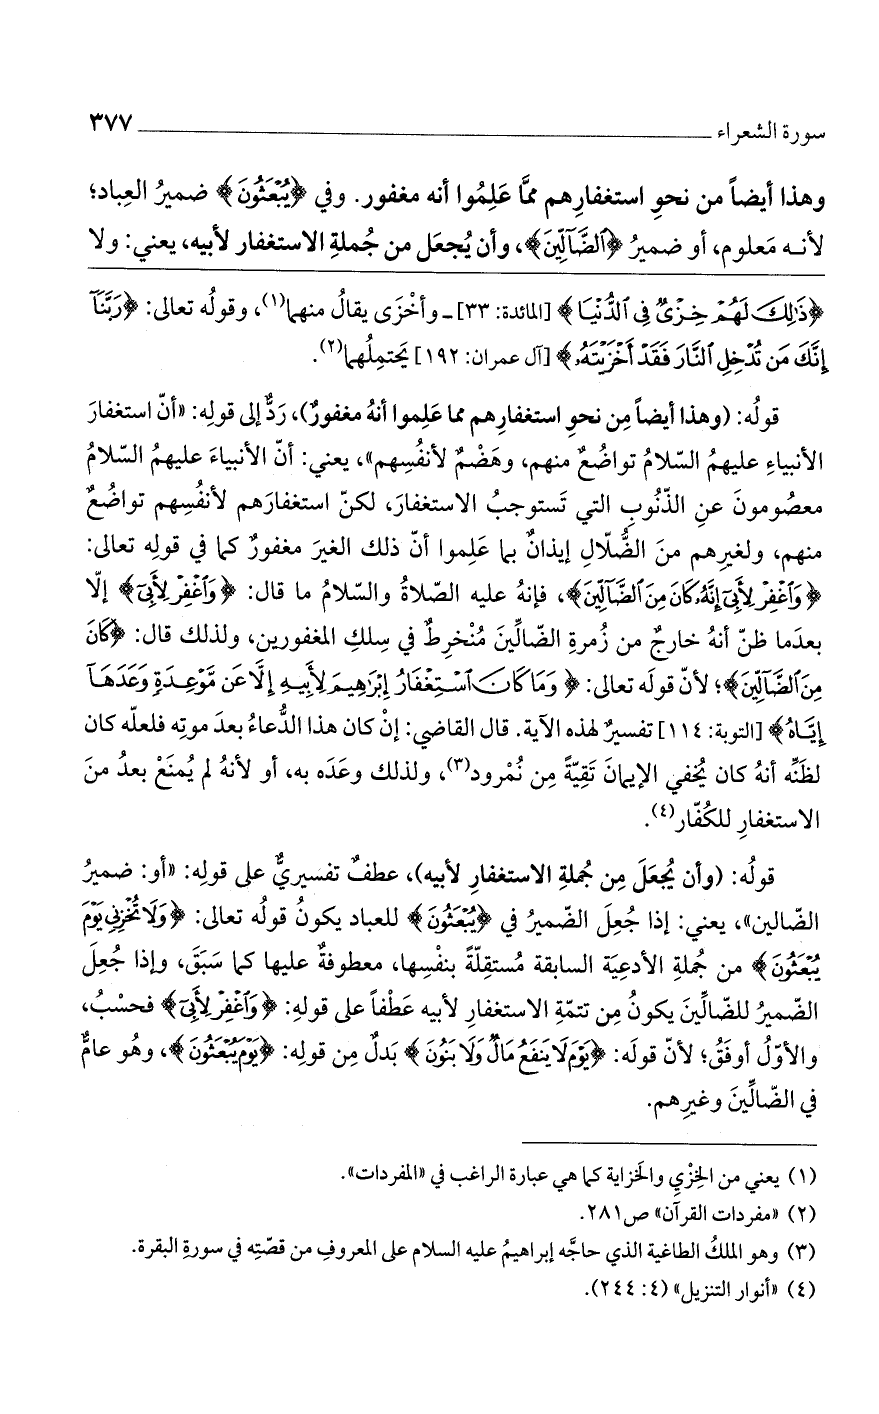 سورة الشعراء ــــــــــــــ ٣٧٧
وهذا أيضاً من نحوِ استغفارِهم ممَّا عَلِمُوا أنه مغفور. وفي ﴿يُبْعَثُونَ﴾ ضميرُ العِباد؛
لأنــه مَعلوم، أو ضميرُ ﴿ٱلضَّآلِّينَ﴾، وأن يُجعَل من جُملةِ الاستغفار لأبيه، يعني: ولا
﴿ذَٰلِكَ لَهُمْ خِزْىٌ فِى ٱلدُّنْيَا﴾ [المائدة: ٣٣] ـ وأخْزَى يقالُ منهما(١)، وقولُه تعالى: ﴿رَبَّنَآ
إِنَّكَ مَن تُدْخِلِ ٱلنَّارَ فَقَدْ أَخْزَيْتَهُۥ﴾ [آل عمران: ١٩٢] يَحتمِلُهما(٢).
قولُه: (وهذا أيضاً مِن نحوِ استغفارِهم مما عَلِموا أنهُ مغفورٌ)، رَدٌّ إلى قولِه: «أنّ استغفارَ
الأنبياءِ عليهمُ السّلامُ تواضُعٌ منهم، وهَضْمٌ لأنفُسِهم»، يعني: أنّ الأنبياءَ عليهمُ السّلامُ
معصُومونَ عنِ الذّنُوبِ التي تَستوجبُ الاستغفارَ، لكنّ استغفارَهم لأنفُسِهم تواضُعٌ
منهم، ولغيرِهم منَ الضُّلّالِ إيذانٌ بما عَلِموا أنّ ذلك الغيرَ مغفورٌ كما في قولِه تعالى:
﴿وَٱغْفِرْ لِأَبِىٓ إِنَّهُۥ كَانَ مِنَ ٱلضَّآلِّينَ﴾، فإنهُ عليه الصّلاةُ والسّلامُ ما قال: ﴿وَٱغْفِرْ لِأَبِىٓ﴾ إلّا
بعدَما ظنّ أنهُ خارجٌ من زُمرةِ الضّالِّينَ مُنْخرِطٌ في سِلكِ المغفورين، ولذلك قال: ﴿كَانَ
مِنَ ٱلضَّآلِّينَ﴾؛ لأنّ قولَه تعالى: ﴿وَمَا كَانَ ٱسْتِغْفَارُ إِبْرَٰهِيمَ لِأَبِيهِ إِلَّا عَن مَّوْعِدَةٍ وَعَدَهَآ
إِيَّاهُ﴾ [التوبة: ١١٤] تفسيرٌ لهذه الآية. قال القاضي: إنْ كان هذا الدُّعاءُ بعدَ موتِه فلعلّه كان
لظَنِّه أنهُ كان يُخفي الإيمانَ تَقِيّةً مِن نُمْرود(٣)، ولذلك وعَدَه به، أو لأنهُ لم يُمنَعْ بعدُ منَ
الاستغفارِ للكُفّار(٤).
قولُه: (وأن يُجعَلَ مِن جُملةِ الاستغفارِ لأبيه)، عطفٌ تفسيريٌّ على قولِه: «أو: ضميرُ
الضّالين»، يعني: إذا جُعِلَ الضّميرُ في ﴿يُبْعَثُونَ﴾ للعباد يكونُ قولُه تعالى: ﴿وَلَا تُخْزِنِى يَوْمَ
يُبْعَثُونَ﴾ من جُملةِ الأدعِيَة السابقة مُستقِلّةً بنفْسِها، معطوفةٌ عليها كما سَبَقَ، وإذا جُعِلَ
الضّميرُ للضّالِّينَ يكونُ مِن تتمّةِ الاستغفارِ لأبيه عَطْفاً على قولهِ: ﴿وَٱغْفِرْ لِأَبِىٓ﴾ فحسْبُ،
والأوّلُ أوفَقُ؛ لأنّ قولَه: ﴿يَوْمَ لَا يَنفَعُ مَالٌ وَلَا بَنُونَ﴾ بَدلٌ مِن قولِه: ﴿يَوْمَ يُبْعَثُونَ﴾، وهُو عامٌّ
في الضّالِّينَ وغيرِهم.
(١) يعني من الخِزْيِ والخَزاية كما هي عبارة الراغب في «المفردات».
(٢) «مفردات القرآن» ص٢٨١.
(٣) وهو الملكُ الطاغية الذي حاجَّه إبراهيمُ عليه السلام على المعروفِ من قصّتِه في سورةِ البقرة.
(٤) «أنوار التنزيل» (٤: ٢٤٤).